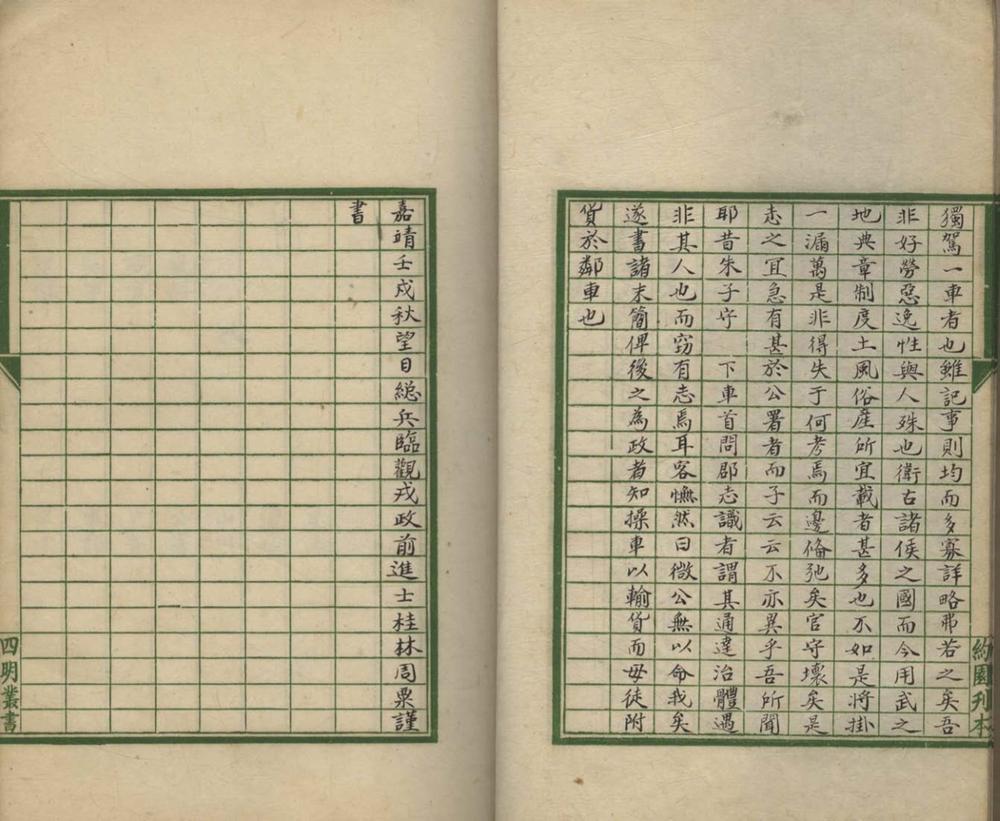 獨駕一車者也雖記事則均而多寡詳略弗若之矣吾
非好勞惡逸性與人殊也衛古諸侯之國而今用武之
地典章制度土風俗產所宜載者甚多也不如是將掛
一漏萬是非得失于何考焉而邊偹弛矣官守壞矣是
志之宜急有甚於公署者而子云云不亦異乎吾所聞
耶昔朱子守 下車首問郡志識者謂其通達治體遇
非其人也而窃有志焉耳客憮然曰微公無以命我矣
遂書諸末簡俾後之為政者知操車以輸貨而毋徒附
貨於鄰車也
約園刊本
嘉靖壬戌秋望日總兵臨觀戎政前進士桂林周㮚謹
書
四明叢書